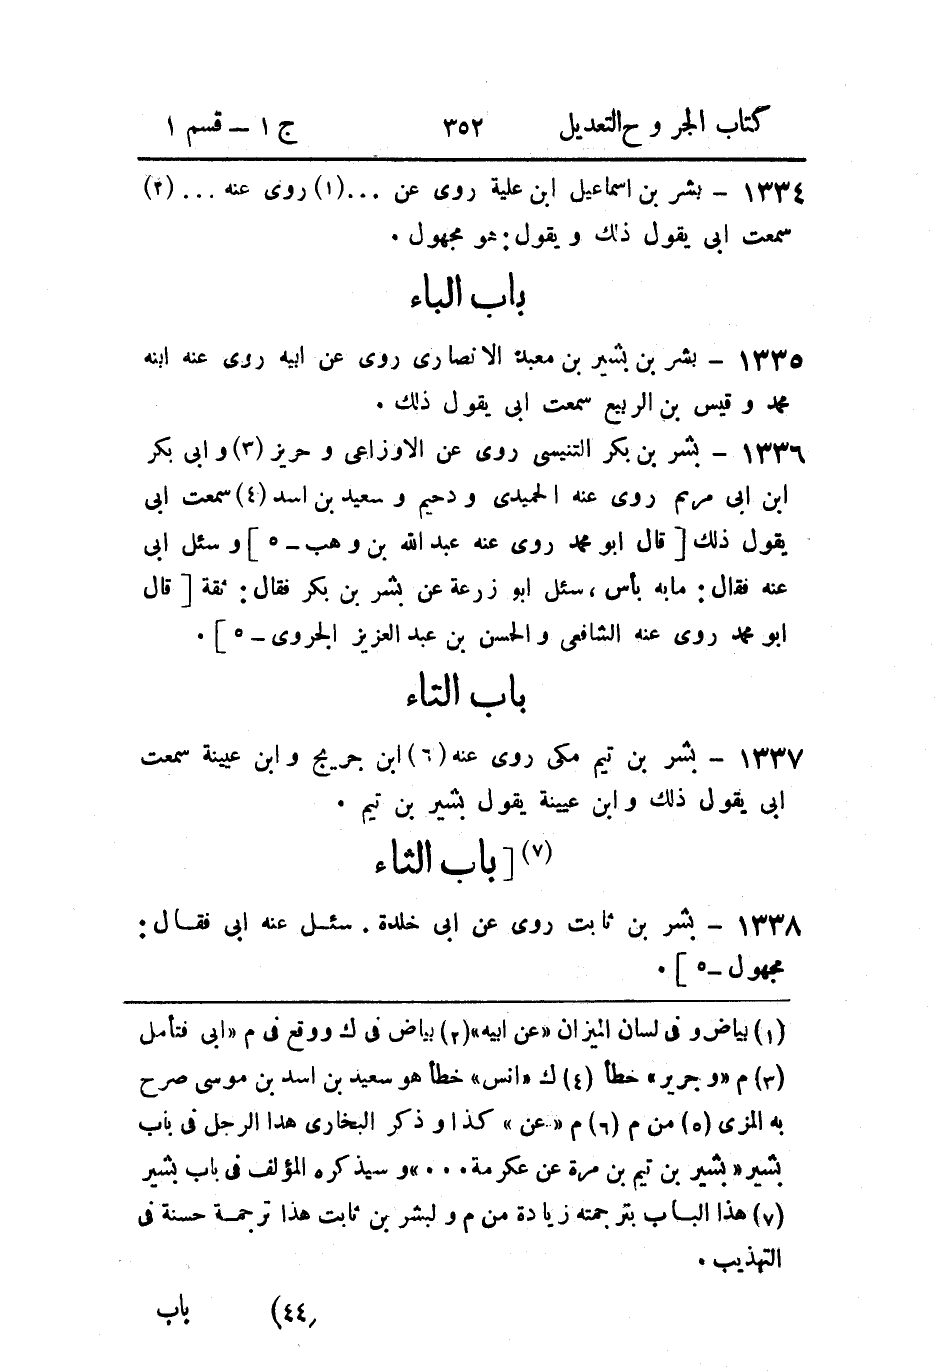 كتاب الجر و ح التعديل ٣٥٢ ج ١ – قسم ١
١٣٣٤ – بشر بن اسماعيل ابن علية روى عن ...(١) روى عنه ... (٢)
سمعت ابى يقول ذلك و يقول: هو مجهول .
باب الباء
١٣٣٥ – بشر بن بشير بن معبد الانصارى روى عن ابيه روى عنه ابنه
محمد و قيس بن الربيع سمعت ابى يقول ذلك .
١٣٣٦ – بشر بن بكر التنيسى روى عن الاوزاعى و حريز (٣) و ابى بكر
ابن ابى مريم روى عنه الحميدى و دحيم و سعيد بن اسد (٤) سمعت ابى
يقول ذلك [ قال ابو محمد روى عنه عبد الله بن وهب – ٥ ] و سئل ابى
عنه فقال: مابه بأس ، سئل ابو زرعة عن بشر بن بكر فقال: ثقة [ قال
ابو محمد روى عنه الشافعى و الحسن بن عبد العزيز الجروى – ٥ ] .
باب التاء
١٣٣٧ – بشر بن تيم مكى روى عنه (٦) ابن جريج و ابن عيينة سمعت
ابى يقول ذلك و ابن عيينة يقول بشير بن تيم .
(٧) [ باب الثاء
١٣٣٨ – بشر بن ثابت روى عن ابى خلدة . سئل عنه ابى فقال:
مجهول – ٥ ] .
(١) بياض و فى لسان الميزان «عن ابيه» (٢) بياض فى ك ووقع فى م «ابى فتأمل
(٣) م «و جرير» خطأ (٤) ك «انس» خطأ هو سعيد بن اسد بن موسى صرح
به المزى (٥) من م (٦) م «عن» كذا و ذكر البخارى هذا الرجل فى باب
بشير «بشير بن تيم بن مرة عن عكرمة ...» و سيذكره المؤلف فى باب بشير
(٧) هذا الباب بترجمته زيادة من م و لبشر بن ثابت هذا ترجمة حسنة فى
التهذيب .
(٤٤) باب